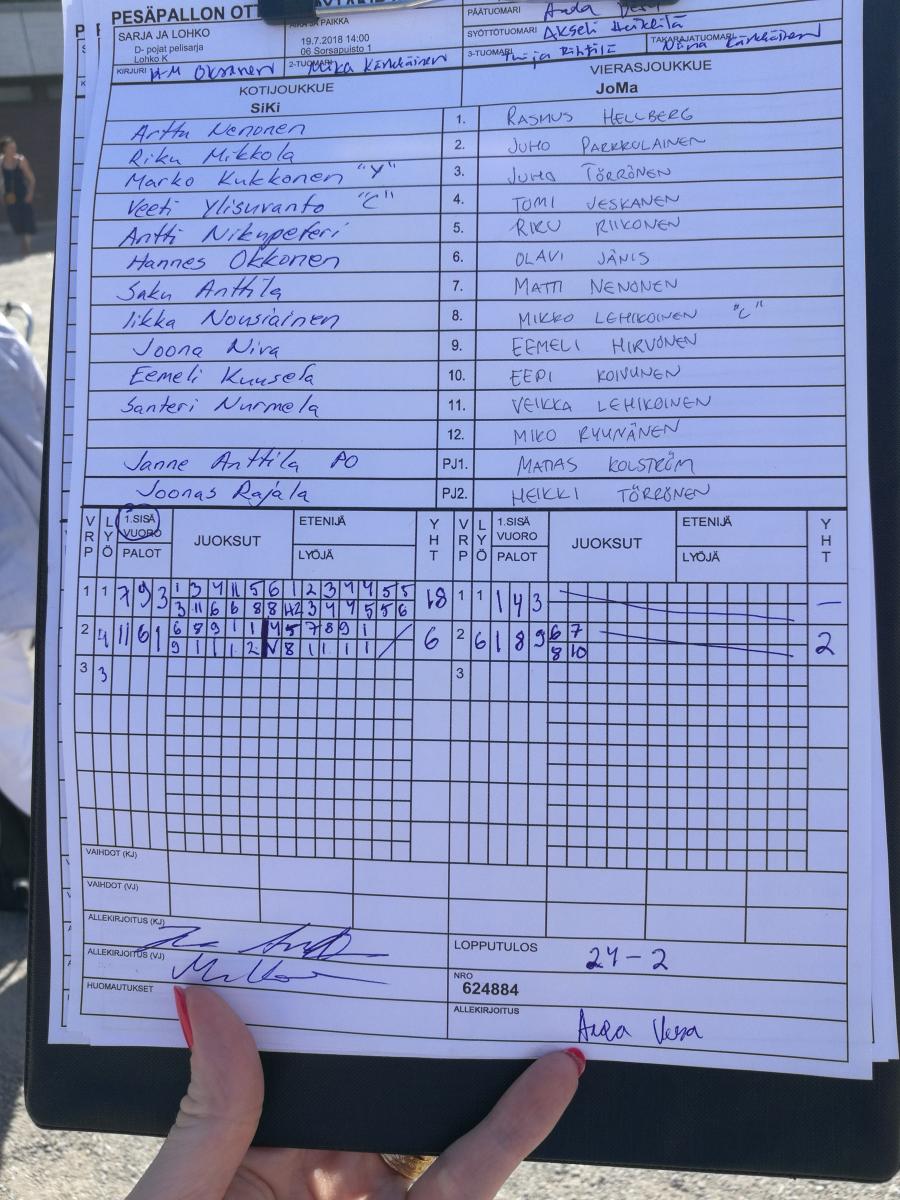 PESÄPALLON OTT
SARJA JA LOHKO
D- pojat pelisarja
Lohko K
JA PAIKKA
19.7.2018 14:00
06 Sorsapuisto 1
PÄÄTUOMARI
SYÖTTÖTUOMARI Akseli Heikkilä
KIRJURI H-M Oksanen
2-TUOMARI Mika Kärkkäinen
3-TUOMARI Tuija Rihtilä
TAKARAJATUOMARI Niina Kärkkäinen
KOTIJOUKKUE
SiKi
VIERASJOUKKUE
JoMa
Arttu Nenonen 1. RASMUS HELLBERG
Riku Mikkola 2. JUHO PARKKULAINEN
Marko Kukkonen "Y" 3. JUHO TÖRRÖNEN
Veeti Ylisuvanto "C" 4. TOMI JESKANEN
Antti Nikupeteri 5. RIKU RIIKONEN
Hannes Okkonen 6. OLAVI JÄNIS
Saku Anttila 7. MATTI NENONEN
Iikka Nousiainen 8. MIKKO LEHIKOINEN "C"
Joona Niva 9. EEMELI HIRVONEN
Eemeli Kuusela 10. EEPI KOIVUNEN
Santeri Nurmela 11. VEIKKA LEHIKOINEN
12. MIKO RYYNÄNEN
Janne Anttila PJ1. MATIAS KOLSTRÖM
Joonas Rajala PJ2. HEIKKI TÖRRÖNEN
VRP LYÖ 1.SISÄ VUORO PALOT JUOKSUT ETENIJÄ LYÖJÄ YHT VRP LYÖ 1.SISÄ VUORO PALOT JUOKSUT ETENIJÄ LYÖJÄ YHT
1 1 7 9 3 1 3 4 11 5 6 1 2 3 4 4 5 5 18 1 1 1 4 3 —
2 4 11 6 1 6 2 6 1 8 9 6 7 2
8 10
3 3 3
VAIHDOT (KJ)
VAIHDOT (VJ)
ALLEKIRJOITUS (KJ)
ALLEKIRJOITUS (VJ)
HUOMAUTUKSET
LOPPUTULOS 24-2
NRO
624884
ALLEKIRJOITUS